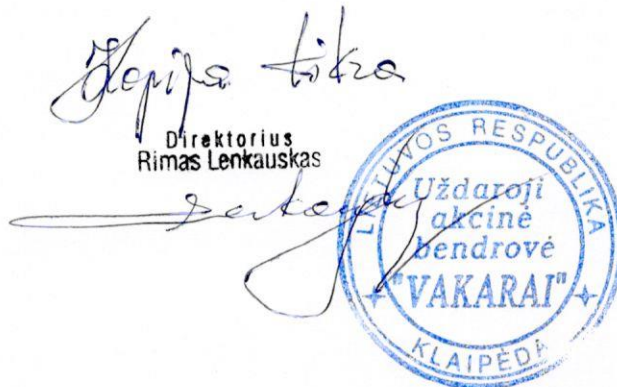 Kopija tikra
Direktorius
Rimas Lenkauskas
LIETUVOS RESPUBLIKA
Uždaroji
akcinė
bendrovė
"VAKARAI"
KLAIPĖDA